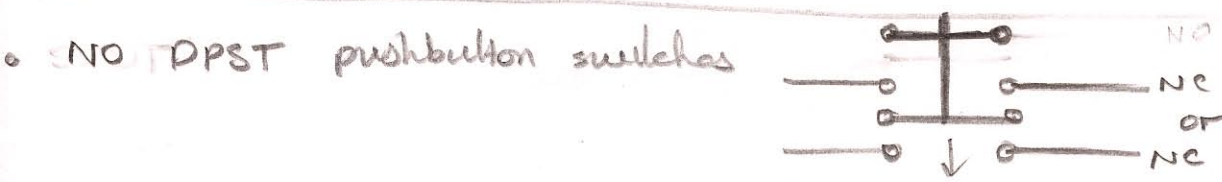 • NO DPST pushbutton switches
NO
NC
or
NC